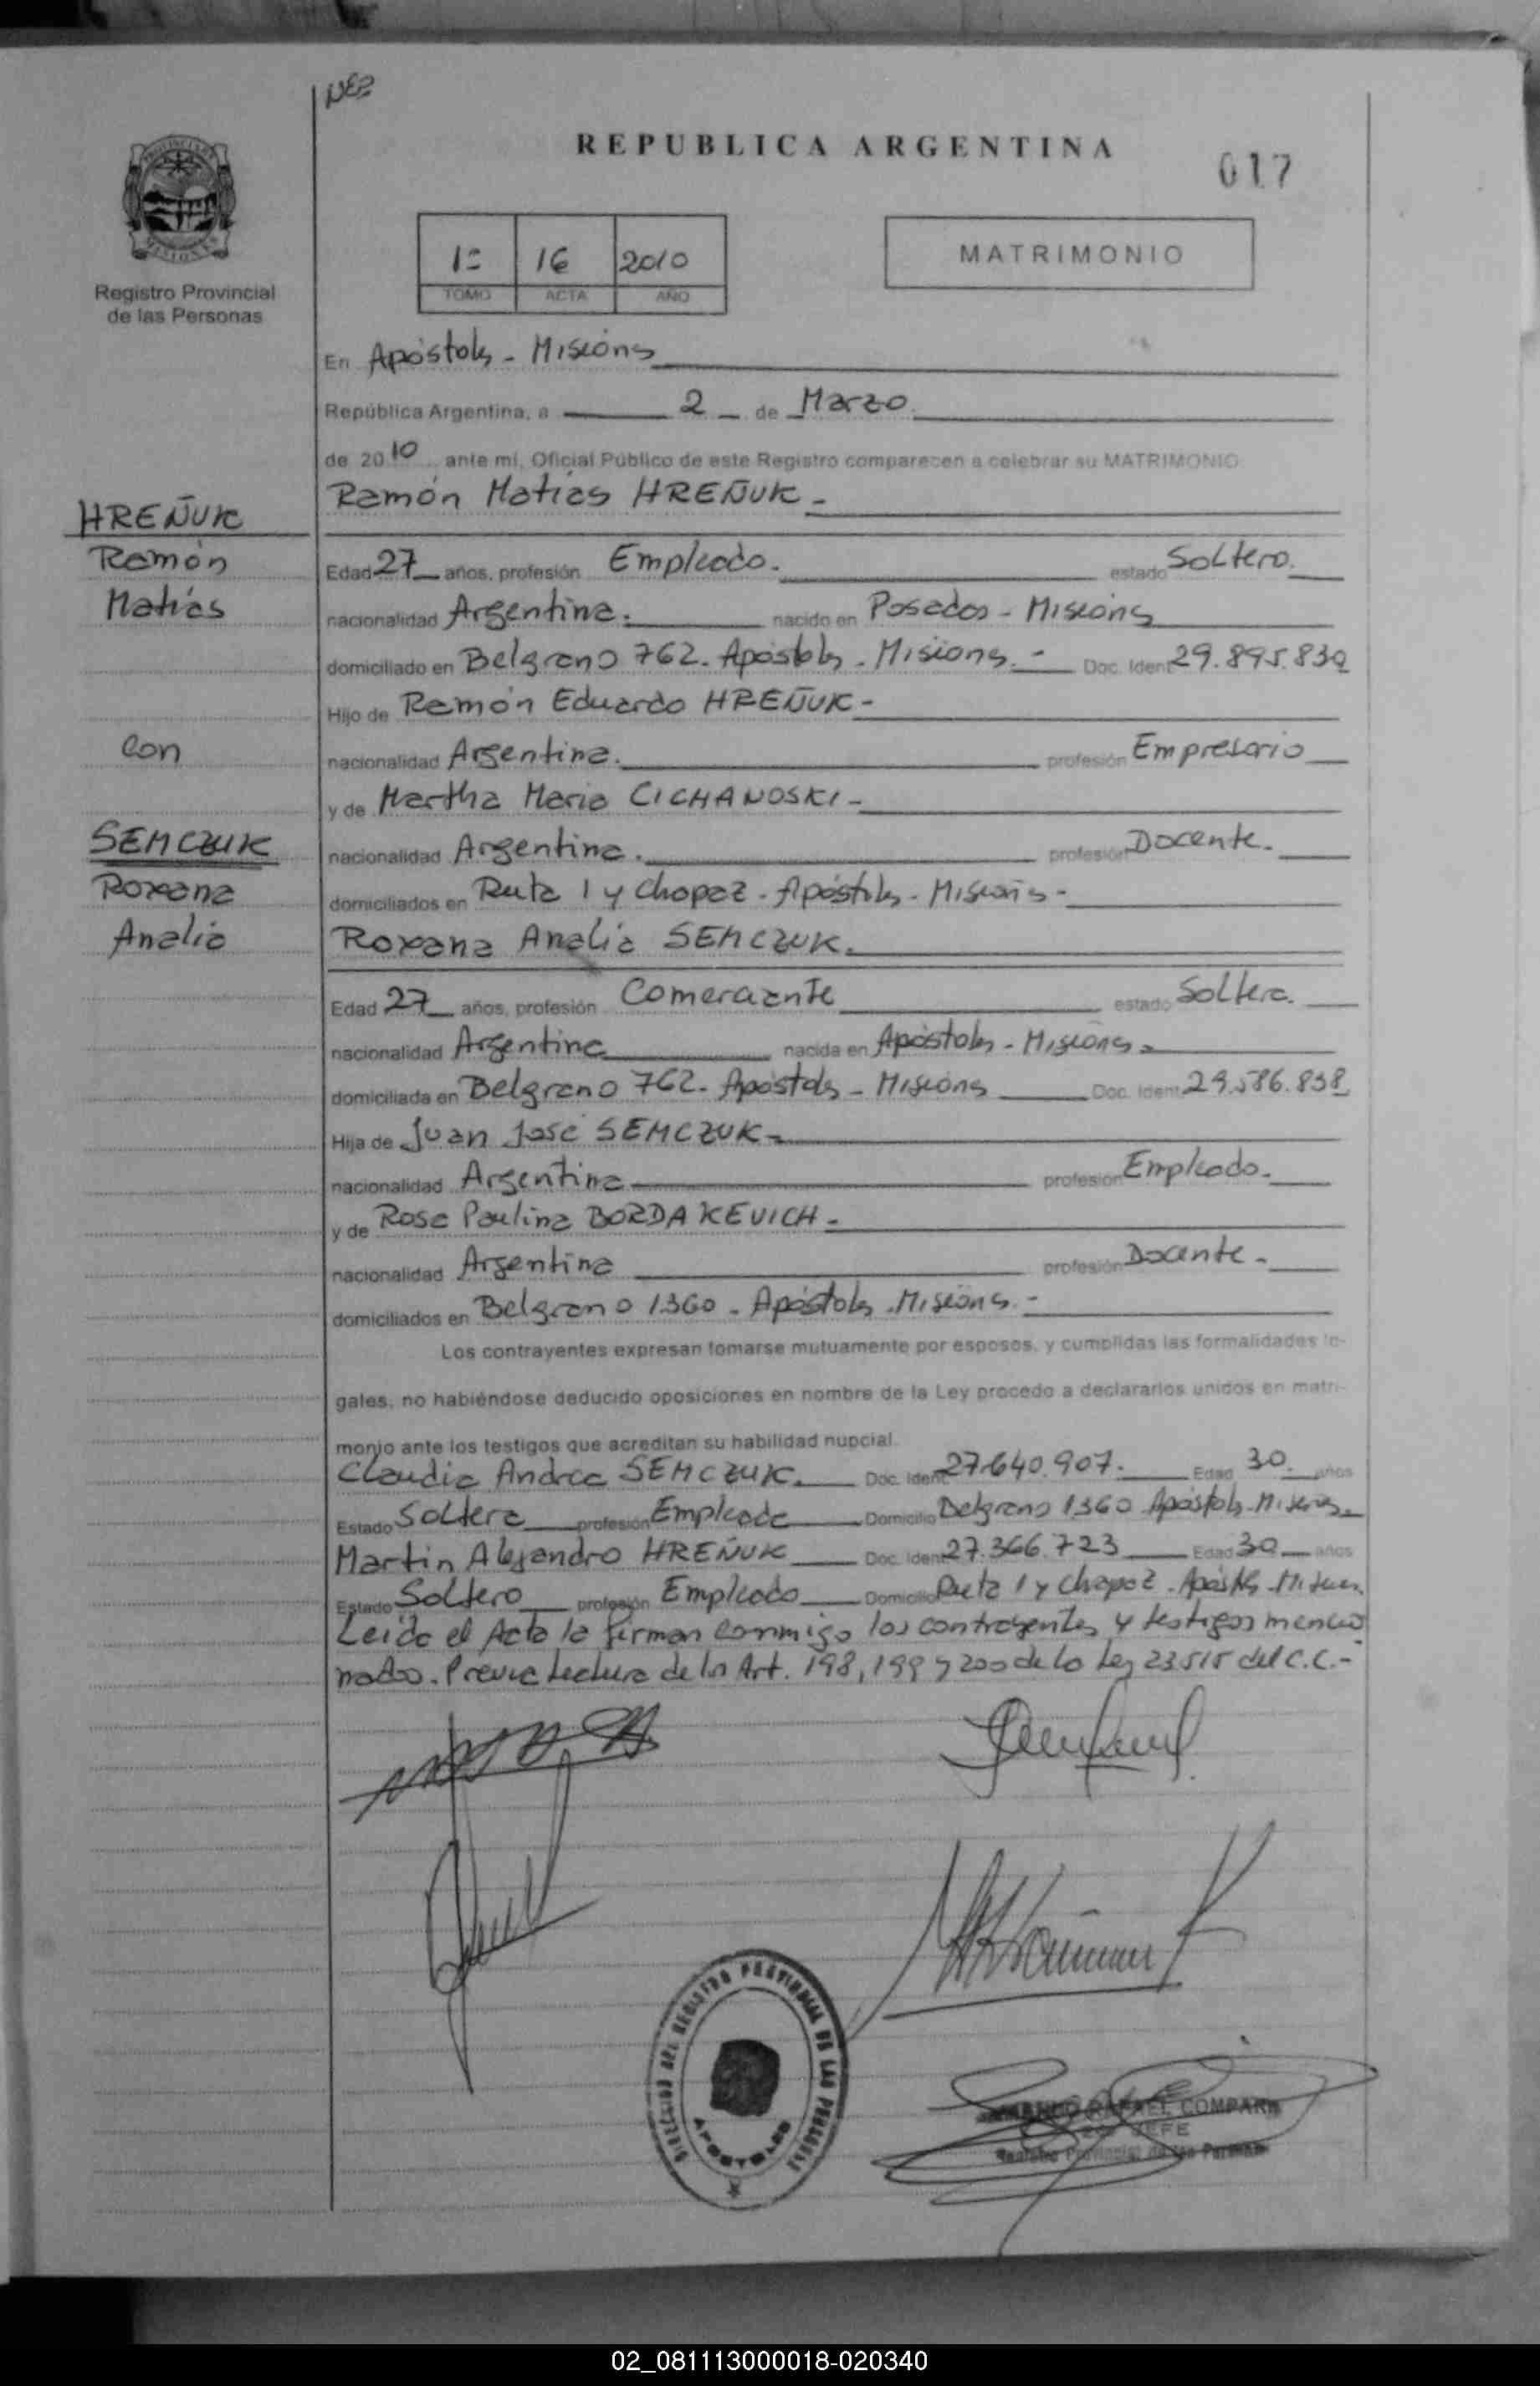 REPUBLICA ARGENTINA
017
1º 16 2010
TOMO ACTA AÑO
MATRIMONIO
PROVINCIA DE MISIONES
Registro Provincial
de las Personas
En Apóstoles - Misiones
República Argentina, a 2 de Marzo
de 2010 ante mi, Oficial Público de este Registro comparecen a celebrar su MATRIMONIO:
Ramón Matías HREÑUK -
HREÑUK
Ramón
Matías
con
SEMCZUK
Roxana
Analia
Edad 27 años, profesión Empleado. estado Soltero.
nacionalidad Argentina. nacido en Posadas - Misiones
domiciliado en Belgrano 762. Apóstoles - Misiones. - Doc. Ident 29.895.830
Hijo de Ramón Eduardo HREÑUK -
nacionalidad Argentina. profesión Empresario
y de Martha Maria CICHANOSKI -
nacionalidad Argentina. profesión Docente.
domiciliados en Ruta 1 y Chapaz - Apóstoles - Misiones -
Roxana Analia SEMCZUK.
Edad 27 años, profesión Comerciante estado Soltera.
nacionalidad Argentina nacida en Apóstoles - Misiones -
domiciliada en Belgrano 762 - Apóstoles - Misiones Doc. Ident 29.586.838
Hija de Juan José SEMCZUK -
nacionalidad Argentina profesión Empleado.
y de Rosa Paulina BORDAKEVICH -
nacionalidad Argentina profesión Docente -
domiciliados en Belgrano 1360 - Apóstoles - Misiones. -
Los contrayentes expresan tomarse mutuamente por esposos, y cumplidas las formalidades le-
gales, no habiéndose deducido oposiciones en nombre de la Ley procedo a declararlos unidos en matri-
monio ante los testigos que acreditan su habilidad nupcial.
Claudia Andrea SEMCZUK. Doc. Ident 27.640.907. Edad 30. años
Estado Soltera profesión Empleada Domicilio Belgrano 1360 Apóstoles - Misiones -
Martin Alejandro HREÑUK Doc. Ident 27.366.723 Edad 30 años
Estado Soltero profesión Empleado Domicilio Ruta 1 y Chapaz - Apóstoles - Misiones.
Leída el Acta la firman conmigo los contrayentes y testigos mencio
nados. Previa Lectura de los Art. 198, 199 y 200 de la Ley 23.515 del C.C. -
DIRECCION DEL REGISTRO PROVINCIAL DE LAS PERSONAS
APOSTOLES
RAFAEL COMPARA
JEFE
Registro Provincial de las Personas
02_081113000018-020340